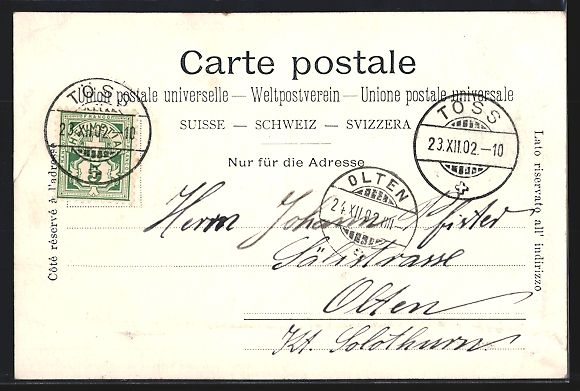 Carte postale
Union postale universelle — Weltpostverein — Unione postale universale
SUISSE — SCHWEIZ — SVIZZERA
Nur für die Adresse
Côté réservé à l'adresse
Lato riservato all' indirizzo
TÖSS
23.XII.02.-10
FRANCO
5
TÖSS
23.XII.02.-10
OLTEN
24.XII.02.
Herrn Johann Pfister
Olten
Kt. Solothurn